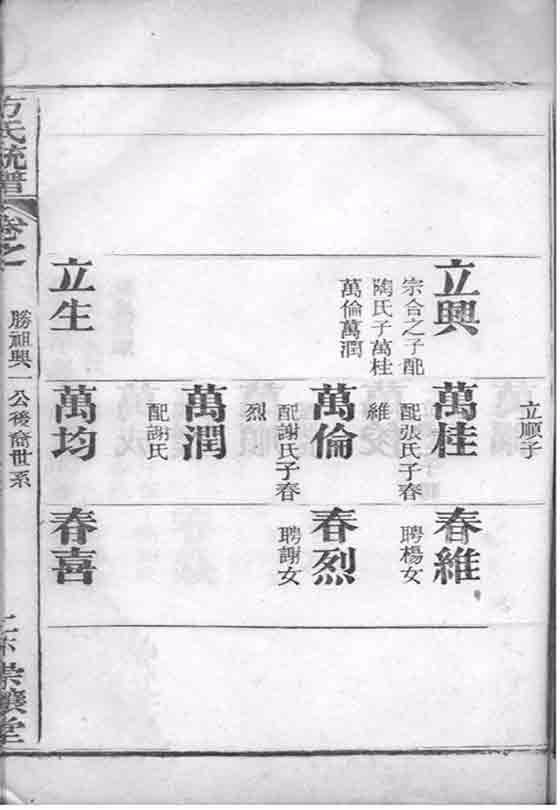 立順子
立興
宗合之子配
陶氏子萬桂
萬倫萬潤
立生
萬桂
配張氏子春
維
萬倫
配謝氏子春
烈
萬潤
配謝氏
萬均
春維
聘楊女
春烈
聘謝女
春喜
方氏統譜
卷之
勝祖興公後裔世系
崇讓堂